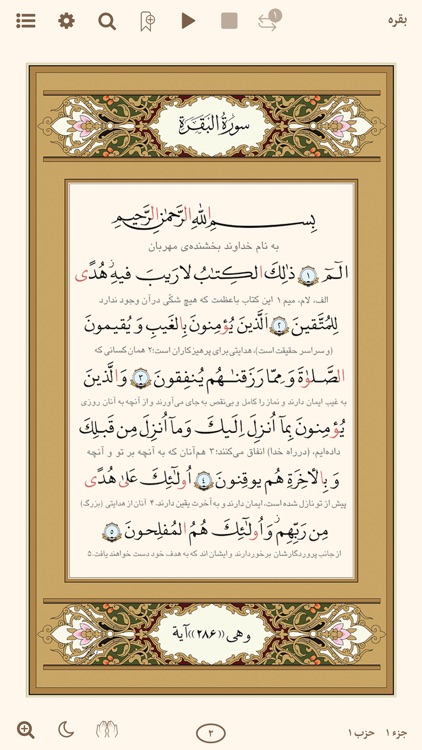 بقره
۱
سورة البقرة
بِسمِ اللهِ الرَّحمٰنِ الرَّحيمِ
به نام خداوند بخشنده‌ی مهربان
الٓمٓ ﴿۱﴾ ذٰلِكَ الكِتٰبُ لا رَيبَ فيهِ هُدًى
الف، لام، میم ۱ این کتاب باعظمت که هیچ شکّی درآن وجود ندارد
لِلمُتَّقينَ ﴿۲﴾ اَلَّذينَ يُؤمِنونَ بِالغَيبِ وَ يُقيمونَ
(و سراسر حقیقت است)، هدایتی برای پرهیزکاران است؛۲ همان کسانی که
الصَّلوٰةَ وَ مِمّا رَزَقنٰهُم يُنفِقونَ ﴿۳﴾ وَالَّذينَ
به غیب ایمان دارند و نماز را کامل و بی‌نقص به جای می‌آورند و از آنچه به آنان روزی
يُؤمِنونَ بِمآ اُنزِلَ اِلَيكَ وَمآ اُنزِلَ مِن قَبلِكَ
داده‌ایم، (درراه خدا) انفاق می‌کنند؛۳ هم‌آنان که به آنچه بر تو و آنچه
وَ بِالأخِرَةِ هُم يوقِنونَ ﴿۴﴾ اُولٰٓئِكَ عَلىٰ هُدًى
پیش از تو نازل شده است، ایمان دارند و به آخرت یقین دارند.۴ آنان از هدایتی (بزرگ)
مِن رَبِّهِم وَ اُولٰٓئِكَ هُمُ المُفلِحونَ ﴿۵﴾
ازجانب پروردگارشان برخوردارند و ایشان اند که به هدف خود دست خواهند یافت.۵
وهی ((۲۸۶)) آیة
جزء ۱ حزب ۱
۲